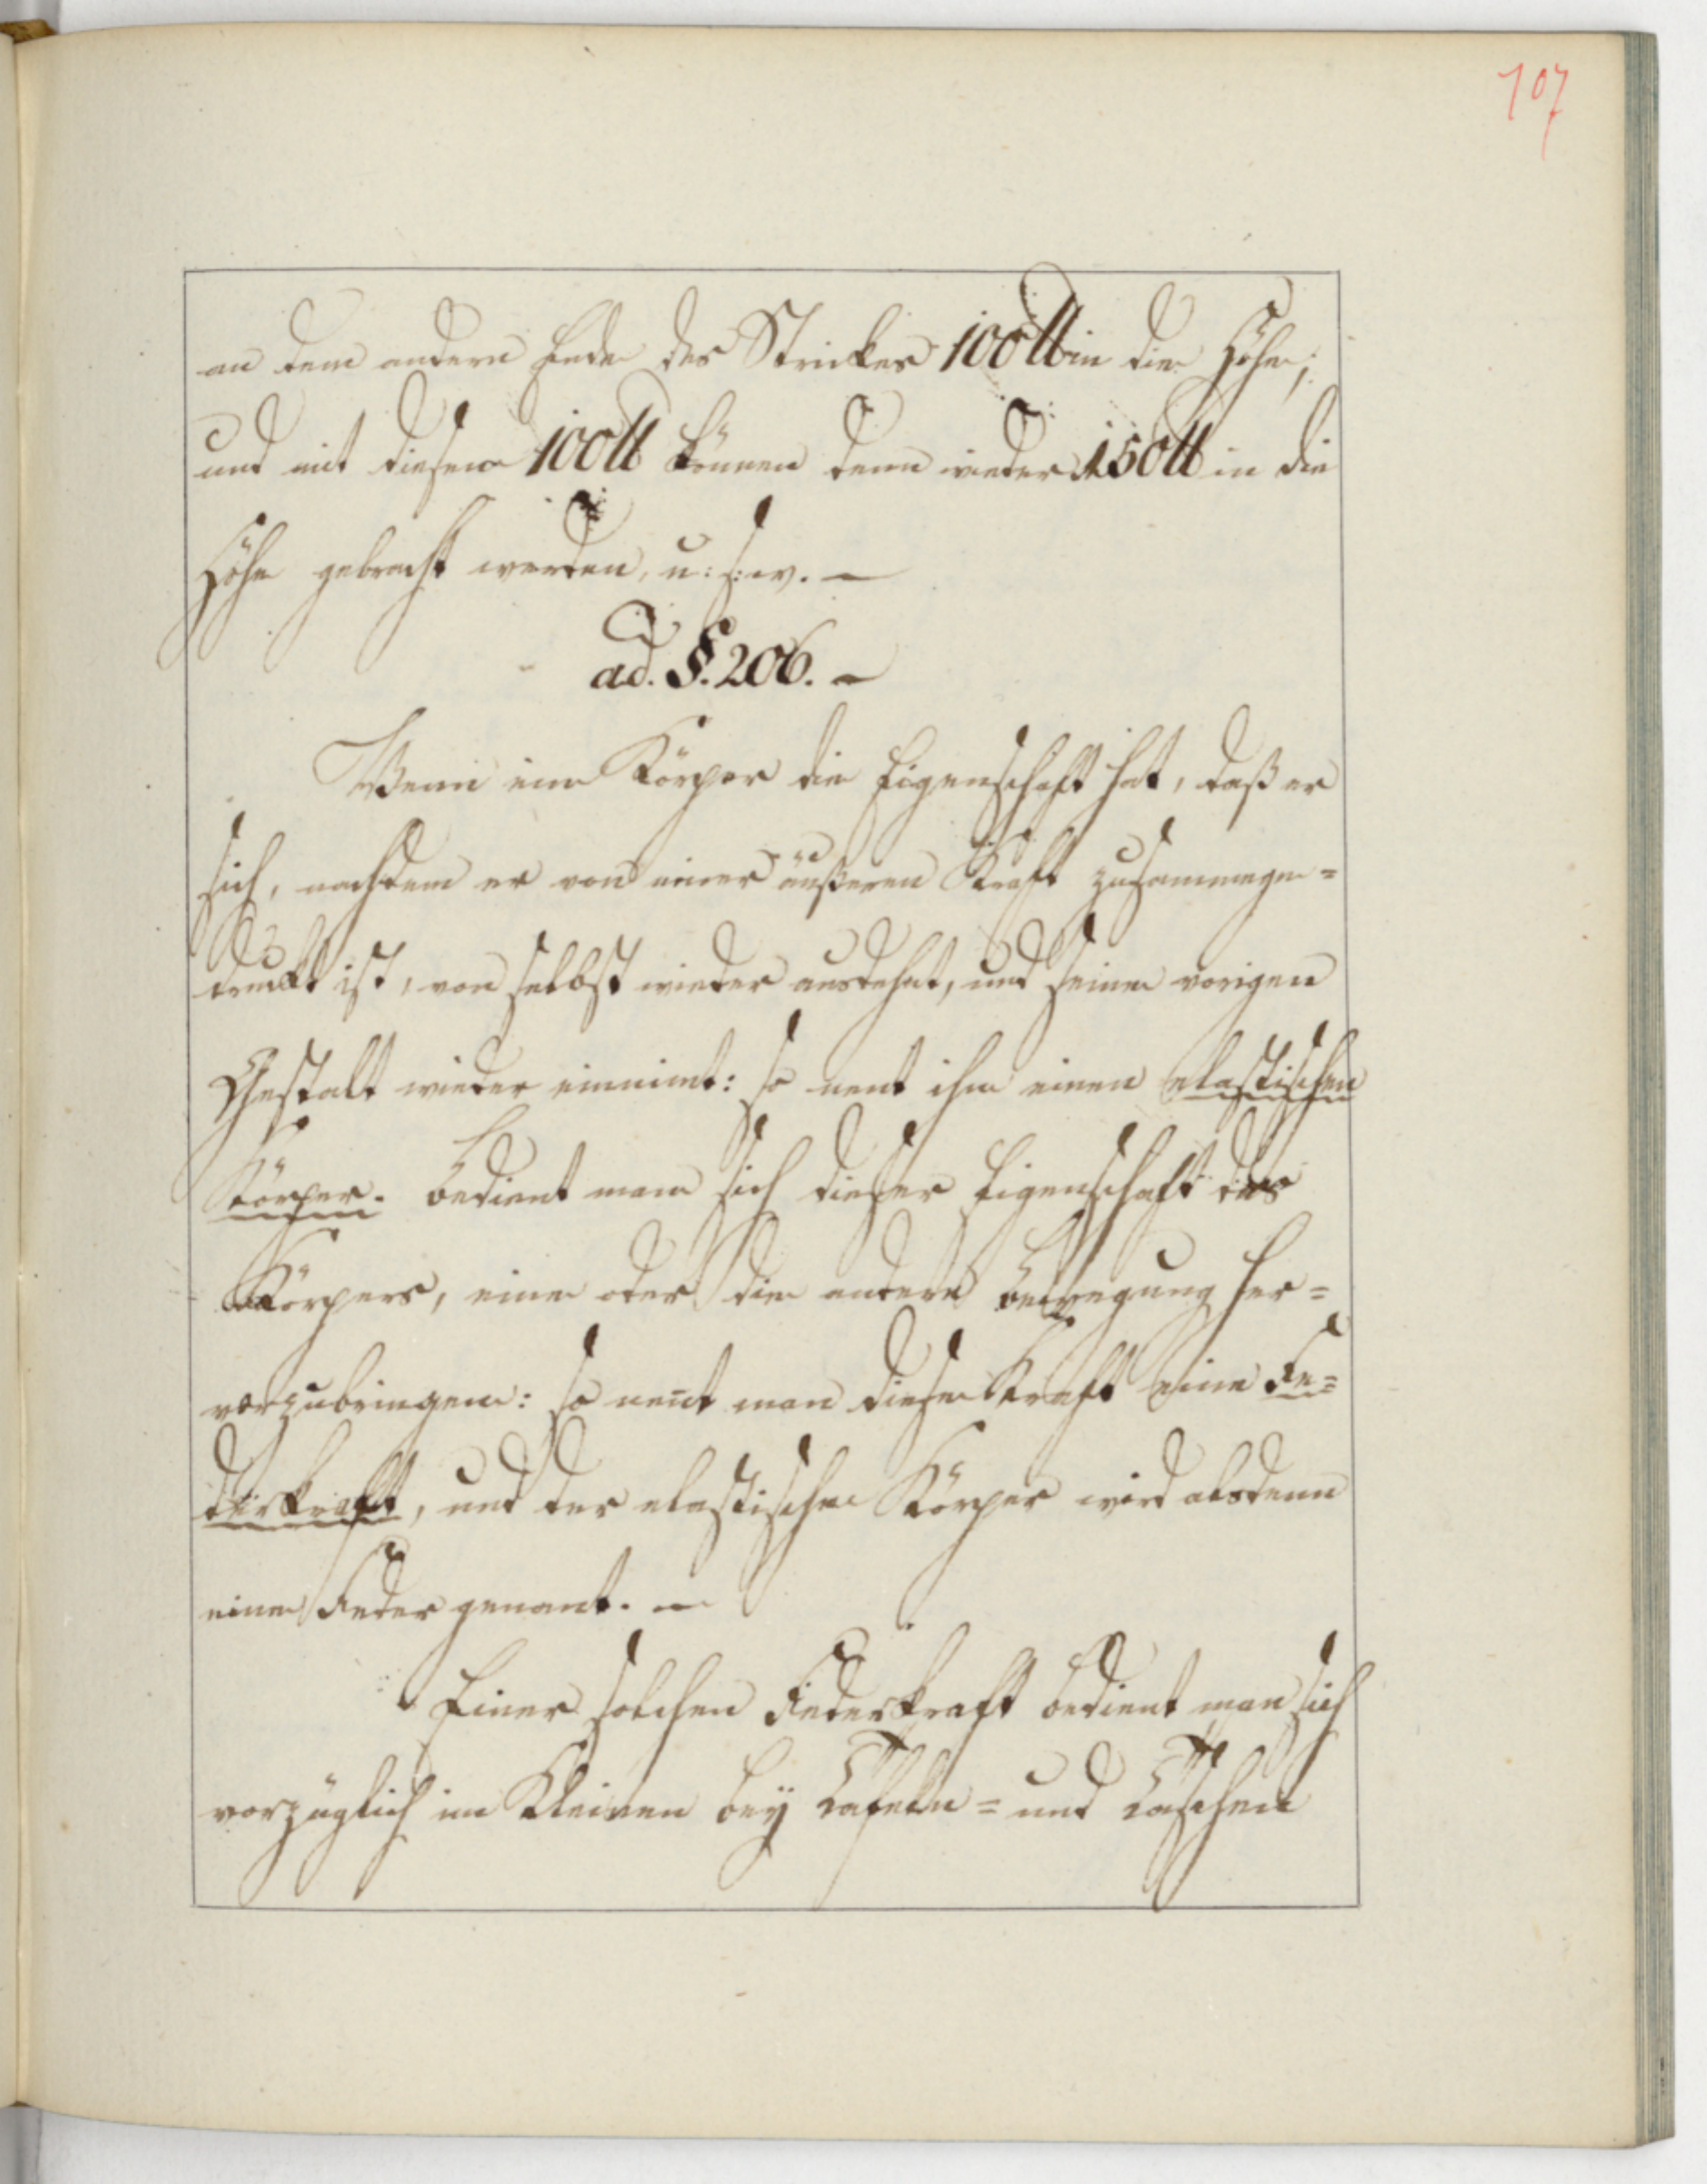 107
an dem andern Ende des Strickes 100 ℔ in die Höhe;
und mit diesen 100 ℔ können denn wieder 150 ℔ in die
Höhe gebracht werden, u: s: w. —
ad. §. 206. —
Wenn ein Körper die Eigenschaft hat, daß er
sich, nachdem er von einer äußeren Kraft zusammenge=
druckt ist, von selbst wieder ausdehnt, und seine vorigen
Gestalt wieder einnimt: so nent ihn einen elastischen
Körper. Bedient man sich dieser Eigenschaft des
Körpers, eine oder die andere Bewegung her=
vorzubringen: so nent man diese Kraft eine Fe=
derkraft, und der elastische Körper wird alsdenn
eine Feder genant. —
Einer solchen Federkraft bedient man sich
vorzüglich im Kleinen bey Tafeln= und Taschen